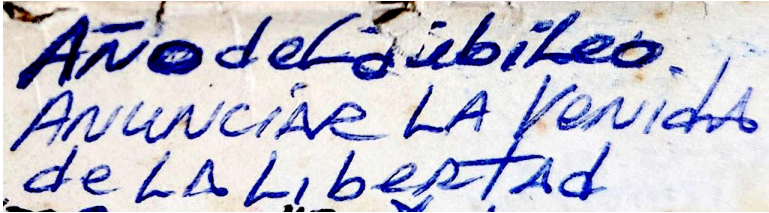 Año deL Jubileo.
ANUNCiAR LA VeNidA
de LA LibeRTAd